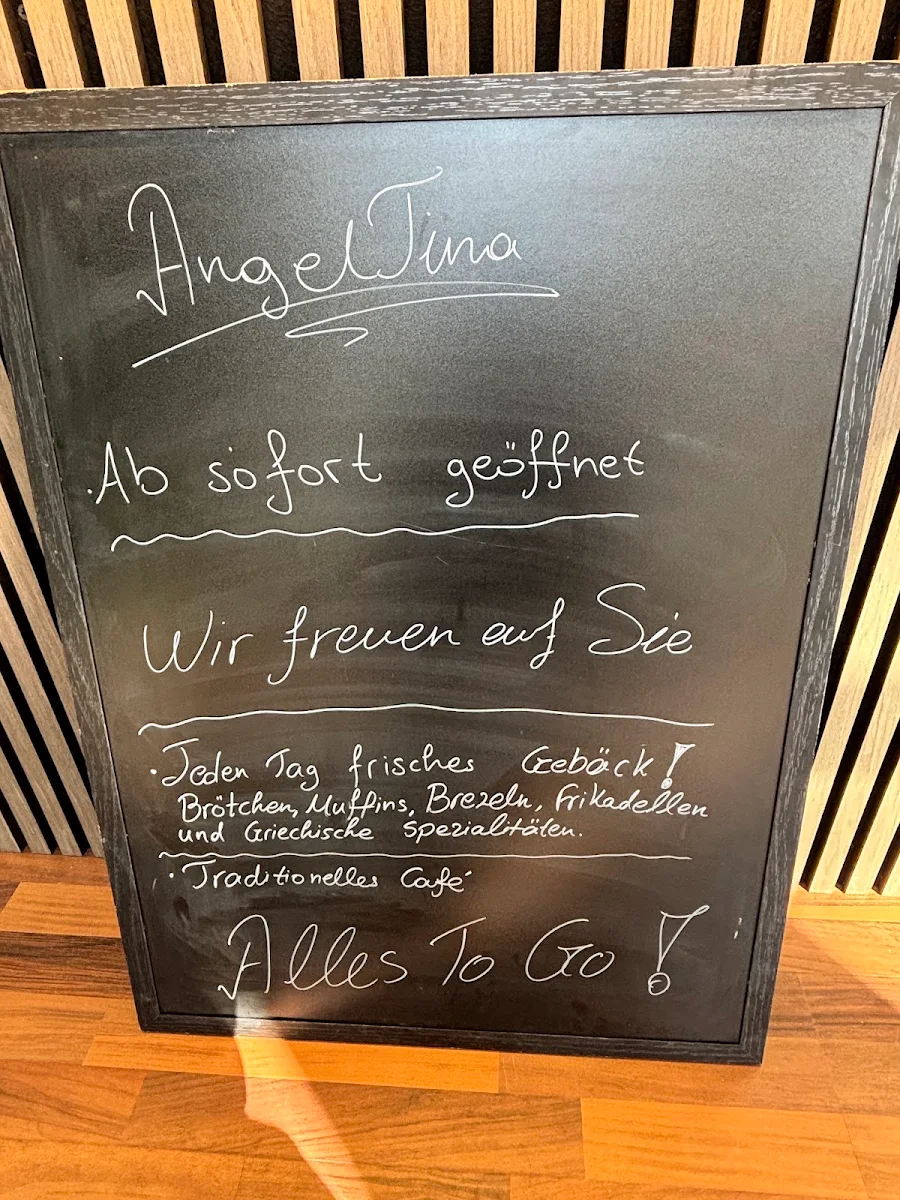 AngelTina
Ab sofort geöffnet
Wir freuen auf Sie
· Jeden Tag frisches Gebäck!
Brötchen, Muffins, Brezeln, Frikadellen
und Griechische Spezialitäten.
· Traditionelles Café
Alles To Go!